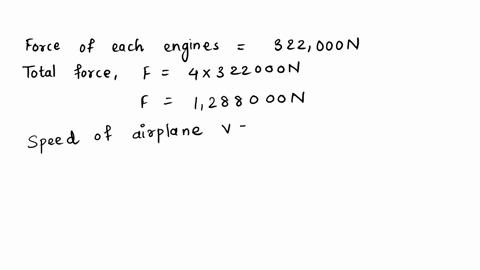 Force of each engines = 322,000N
Total force, F = 4x322000N
F = 1,288000N
Speed of airplane v -